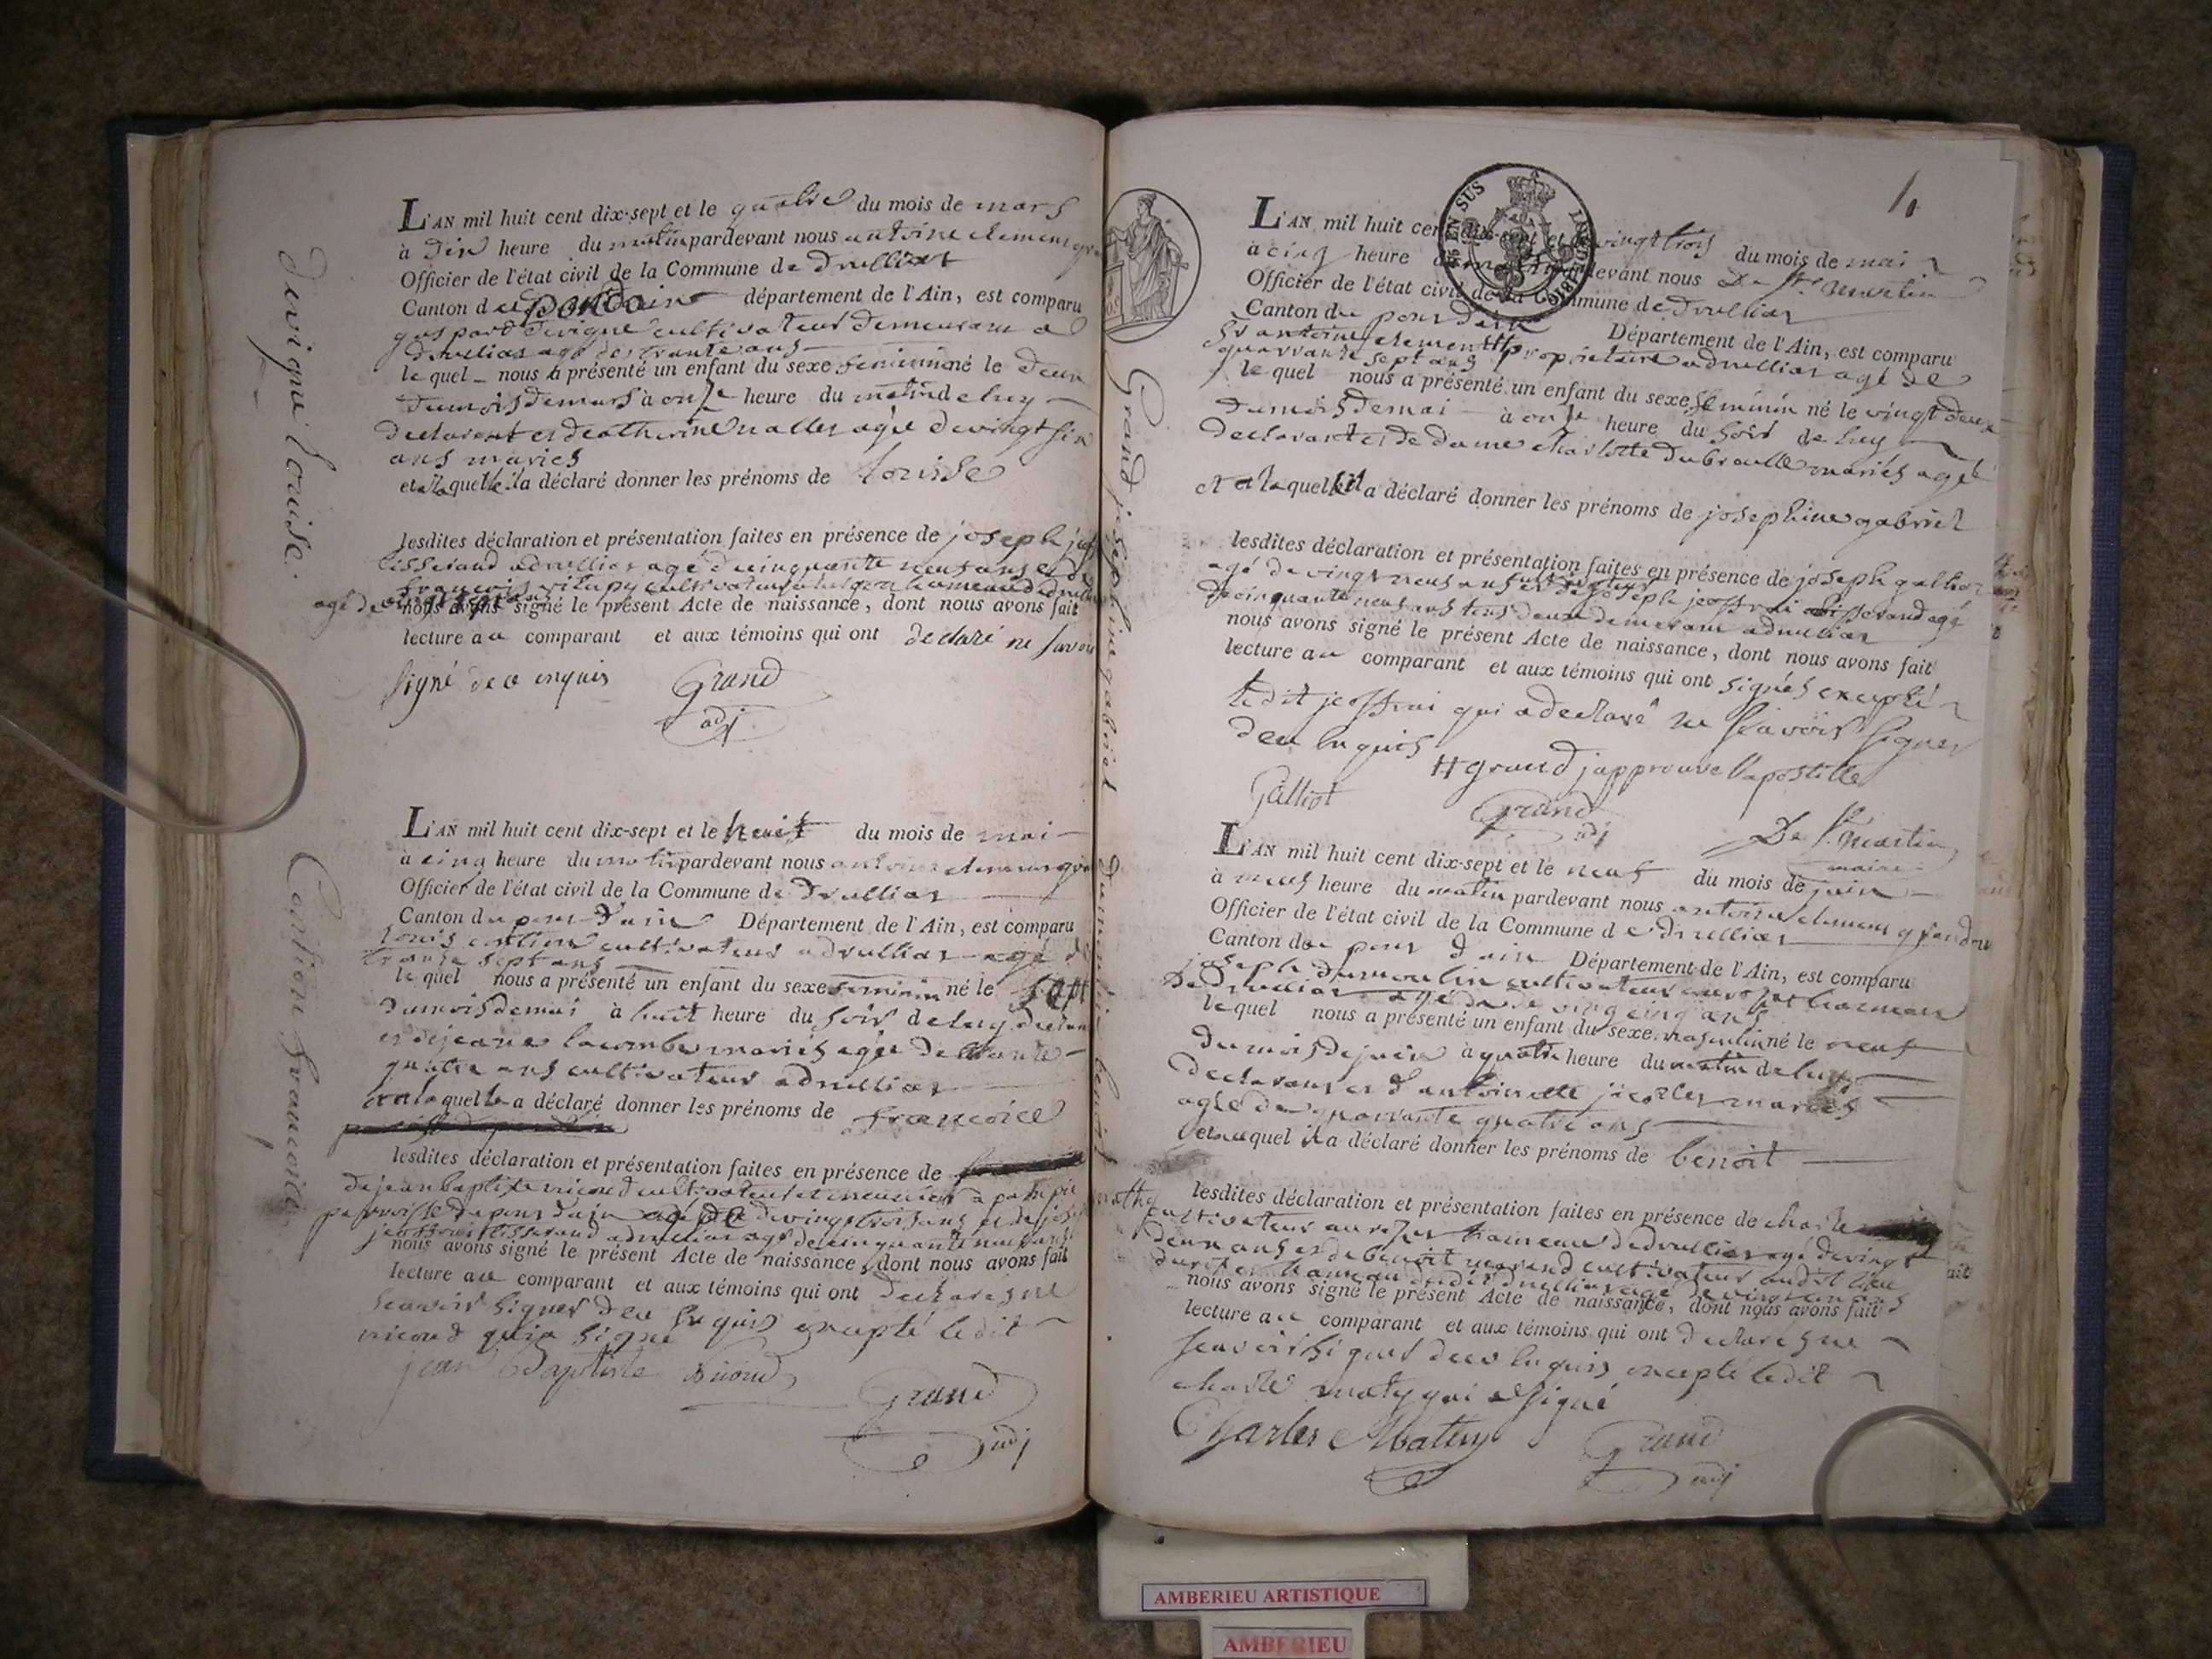 devigne Louise.
L'AN mil huit cent dix-sept et le quatre du mois de mars
à dix heure du matin pardevant nous antoine clement
Officier de l'état civil de la Commune de druillat
Canton de pondain département de l'Ain, est comparu
gaspard devigne cultivateur demeurant a
druillas agé de trante ans
le quel nous a présenté un enfant du sexe feminin né le deux
du mois de mars à onze heure du matin de luy
declarent et de catherine nallet agée de vingt six
ans mariés
et a laquelle il a déclaré donner les prénoms de louisse
lesdites déclaration et présentation faites en présence de joseph
tisserand a druillias agé de cinquante neuf ans et de
françois cultivateur
agé de
nous avons signé le présent Acte de naissance, dont nous avons fait
lecture au comparant et aux témoins qui ont declaré ne savoir
signé de ce enquis Grand
adj
Cartion francoice
L'AN mil huit cent dix-sept et le huit du mois de mai
à cinq heure du matin pardevant nous antoine clement
Officier de l'état civil de la Commune de druillias
Canton du pont d'ain Département de l'Ain, est comparu
Louis cartion cultivateur a druillias agé de
trante sept ans
le quel nous a présenté un enfant du sexe feminin né le sept
du mois de mai à huit heure du soir de luy
et de jeane lacombe mariés agée de trante
quatre ans cultivateur a druillias
et a laquelle a déclaré donner les prénoms de francoice
lesdites déclaration et présentation faites en présence de
de jean baptiste nicoud cultivateur et
paroisse de pont dain agé de de vingt trois ans et de
jeoffrai tisserand a druillias agé de cinquante neuf ans
nous avons signé le présent Acte de naissance, dont nous avons fait
lecture au comparant et aux témoins qui ont declarés ne
scavoir signer de ce enquis excepté ledit
nicoud qui a signé
jean Baptiste Nicoud
Grand
adj
1EN SUS 1816
Grand josephine gabriel
L'AN mil huit cent dix-sept et le vingt trois du mois de mai
à cinq heure du pardevant nous De St. Martin
Officier de l'état civil de la Commune de druillias
Canton du pont dain Département de l'Ain, est comparu
Sr antoine clement # propriétaire a druillias agé de
quarrante sept ans
le quel nous a présenté un enfant du sexe feminin né le vingt deux
du mois de mai à onze heure du soir de luy
declarant et de dame charlotte dubreuille mariés agé
et a laquelle il a déclaré donner les prénoms de josephine gabriel
lesdites déclaration et présentation faites en présence de joseph galliot
agé de vingt neuf ans et de joseph jeoffrai tisserand agé
de cinquante neuf ans tous deux demeurant a druillias
nous avons signé le présent Acte de naissance, dont nous avons fait
lecture au comparant et aux témoins qui ont signés excepté
ledit jeoffrai qui a declaré ne scavoir signer
de ce enquis # grand j'approuve l'apostille
Galliot Grand
adj De St. Martin
maire
Dumoulin benoit
L'AN mil huit cent dix-sept et le neuf du mois de juin
à neuf heure du matin pardevant nous antoine clement grand
Officier de l'état civil de la Commune de druillias
Canton du pont d'ain Département de l'Ain, est comparu
joseph dumoulin cultivateur hameau
de druillias agé de vingt cinq ans
le quel nous a présenté un enfant du sexe masculin né le neuf
du mois de juin à quatre heure du matin de luy
declarant et d'antoinette mariés
agée de quarrante quatre ans
et auquel il a déclaré donner les prénoms de benoit
lesdites déclaration et présentation faites en présence de charle
mathy cultivateur hameau de druillias agé de vingt
deux ans et de benoit cultivateur audit lieu
hameau dudit druillias agé de
nous avons signé le présent Acte de naissance, dont nous avons fait
lecture au comparant et aux témoins qui ont declarés ne
scavoir signer de ce enquis excepté ledit
charle maty qui a signé
Charles Mathy Grand
adj
AMBERIEU ARTISTIQUE
AMBERIEU